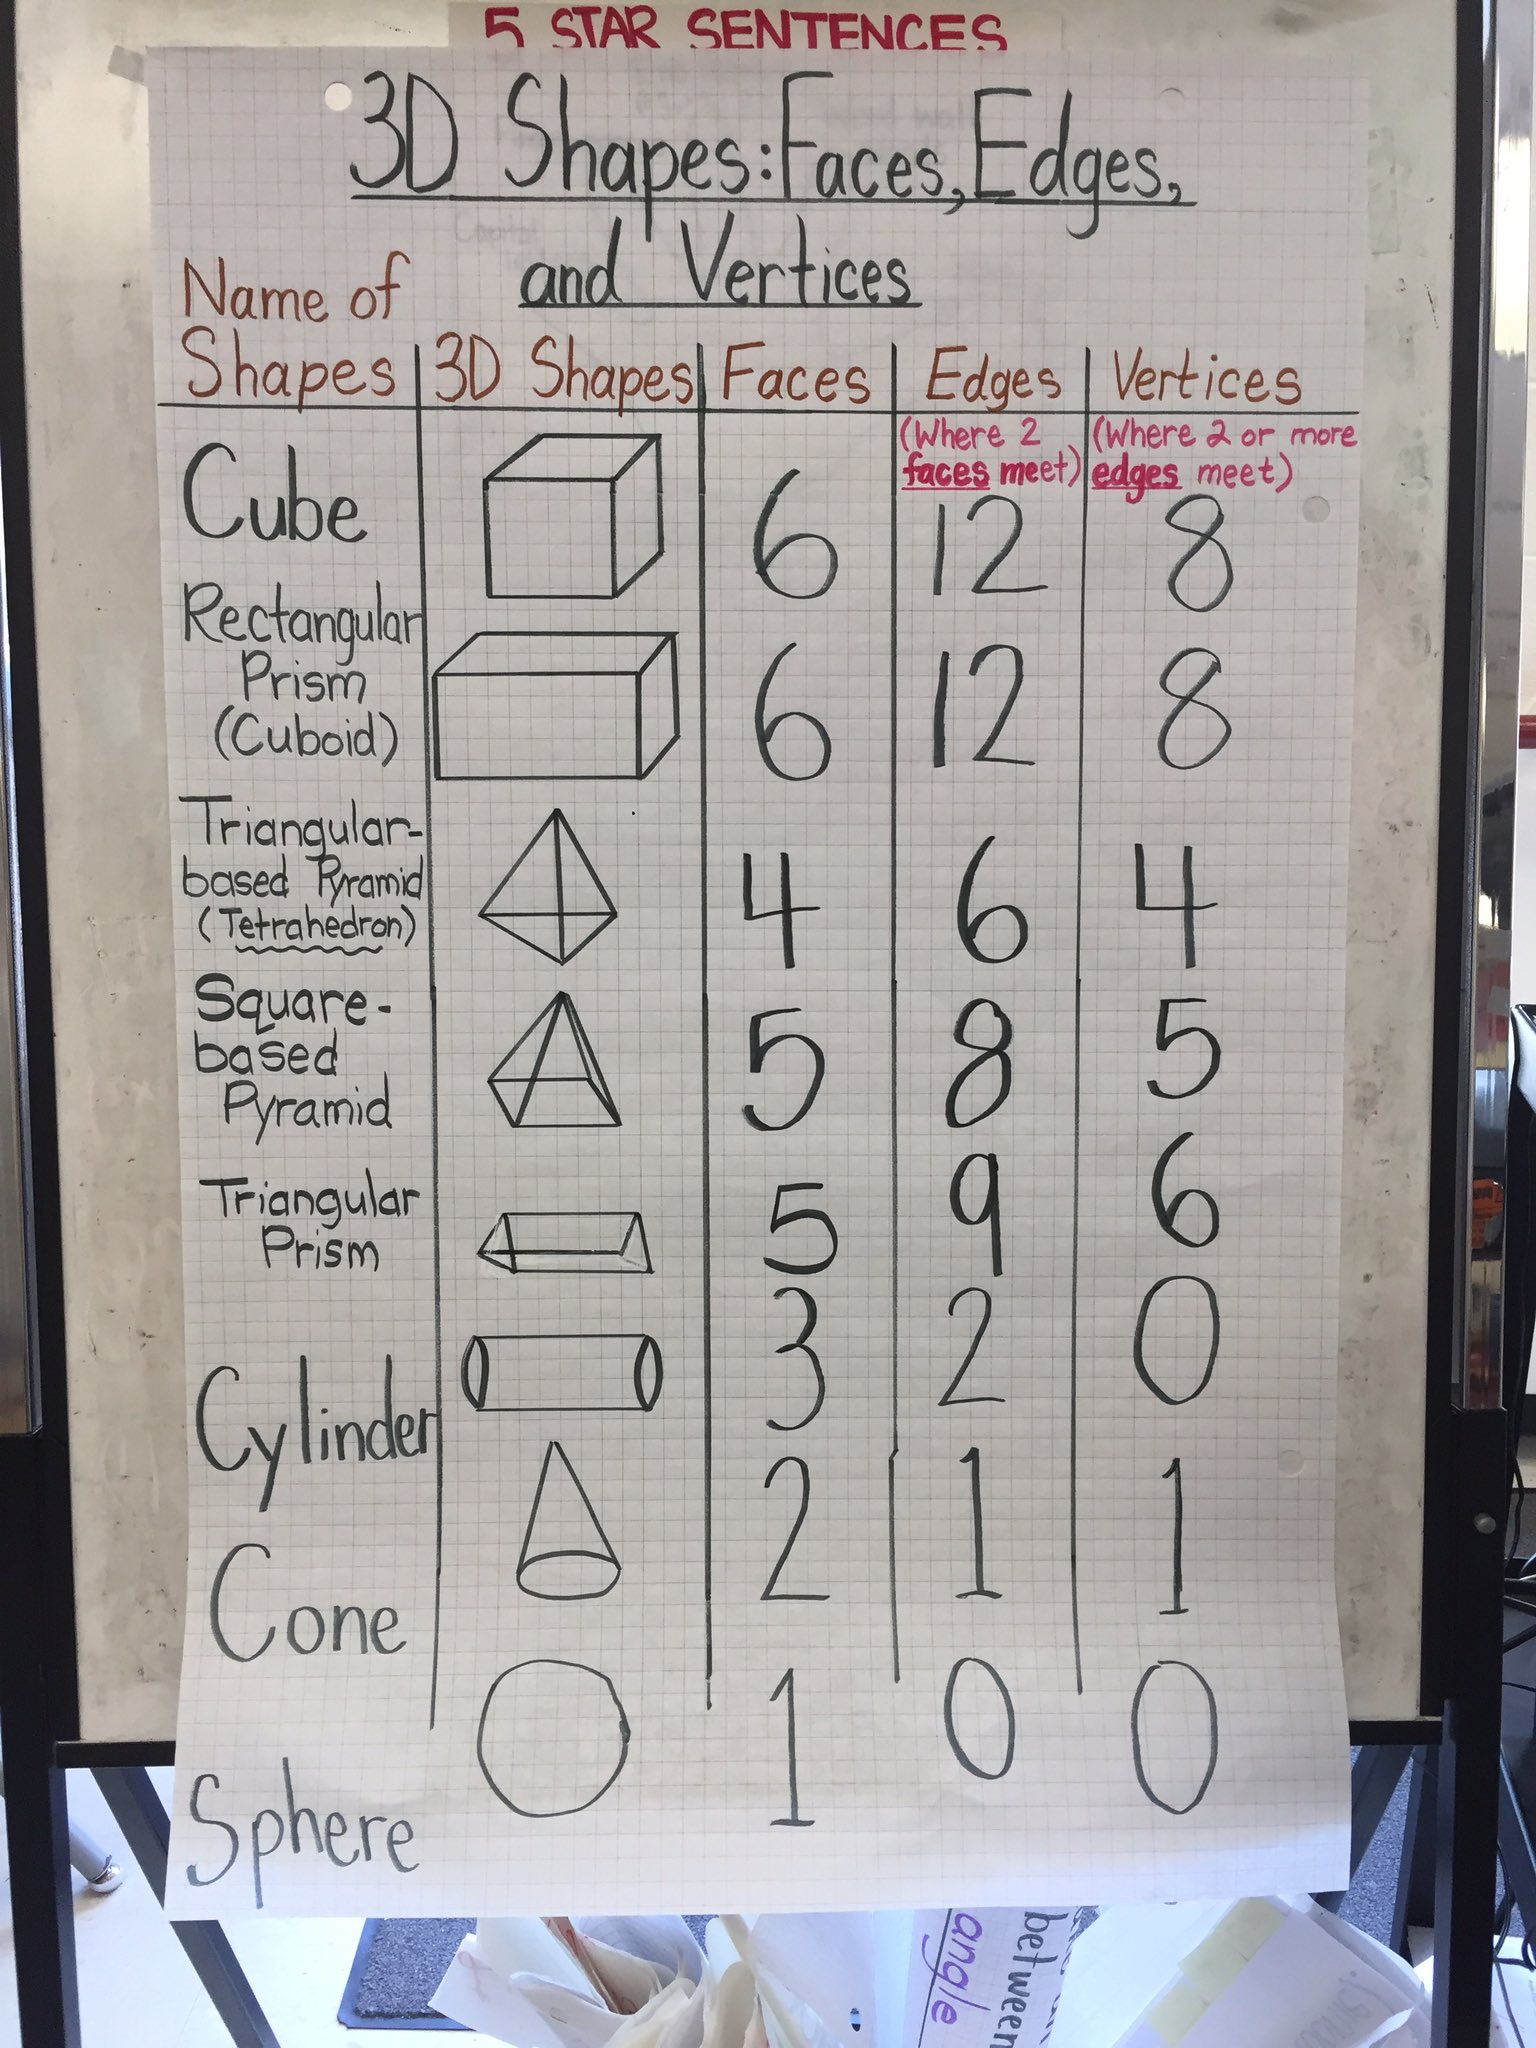 5 STAR SENTENCES
3D Shapes: Faces, Edges,
and Vertices
Name of
Shapes
3D Shapes
Faces
Edges
Vertices
(Where 2
faces meet)
(Where 2 or more
edges meet)
Cube
6
12
8
Rectangular
Prism
(Cuboid)
6
12
8
Triangular-
based Pyramid
(Tetrahedron)
4
6
4
Square-
based
Pyramid
5
8
5
Triangular
Prism
5
9
6
Cylinder
3
2
0
Cone
2
1
1
Sphere
1
0
0
angle
between